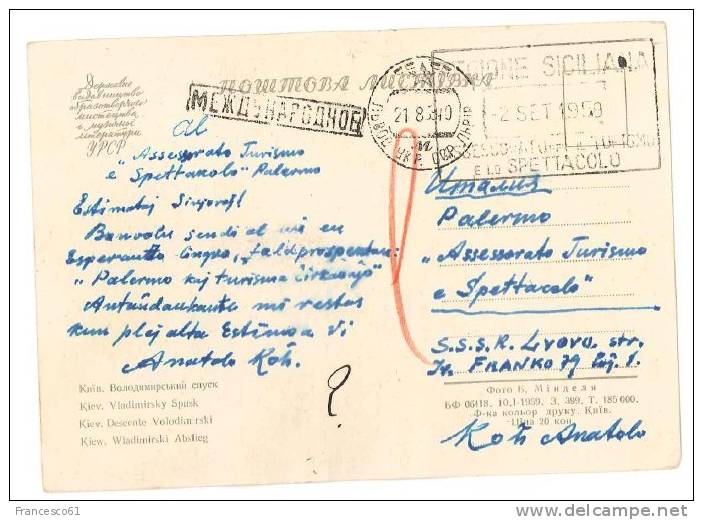 Державне
видавництво
образотворчого
мистецтва
і музичної
літератури
УРСР
ПОШТОВА ЛИСТІВКА
МЕЖДУНАРОДНОЕ
21 8
REGIONE SICILIANA
-2 SET 1959
TURISMO
E LO SPETTACOLO
al
„Assessorato Turismo
e Spettacolo" Palermo
Estimataj Sinjoroj!
Bonvolu sendi al mi en
Esperanto lingvo „faldprospekton:
„Palermo kaj turisma ĉirkaŭaĵo"
Antaŭdankante mi restas
kun plej alta Estimo a Vi
Anatolo Koh.
Италия
Palermo
„Assessorato Turismo
e Spettacolo"
S.S.S.R. Lvovo, str.
Iv. FRANKO 79 loĝ. 1.
Koh Anatolo
Київ. Володимирський спуск
Kiev. Vladimirsky Spusk
Kiev. Descente Volodimirski
Kiew. Wladimirski Abstieg
?
Фото Б. Мінделя
БФ 06118. 10.I-1959. З. 399. Т. 185 000.
Ф-ка кольор друку. Київ.
Ціна 20 коп.
Francesco61
delcampe.net